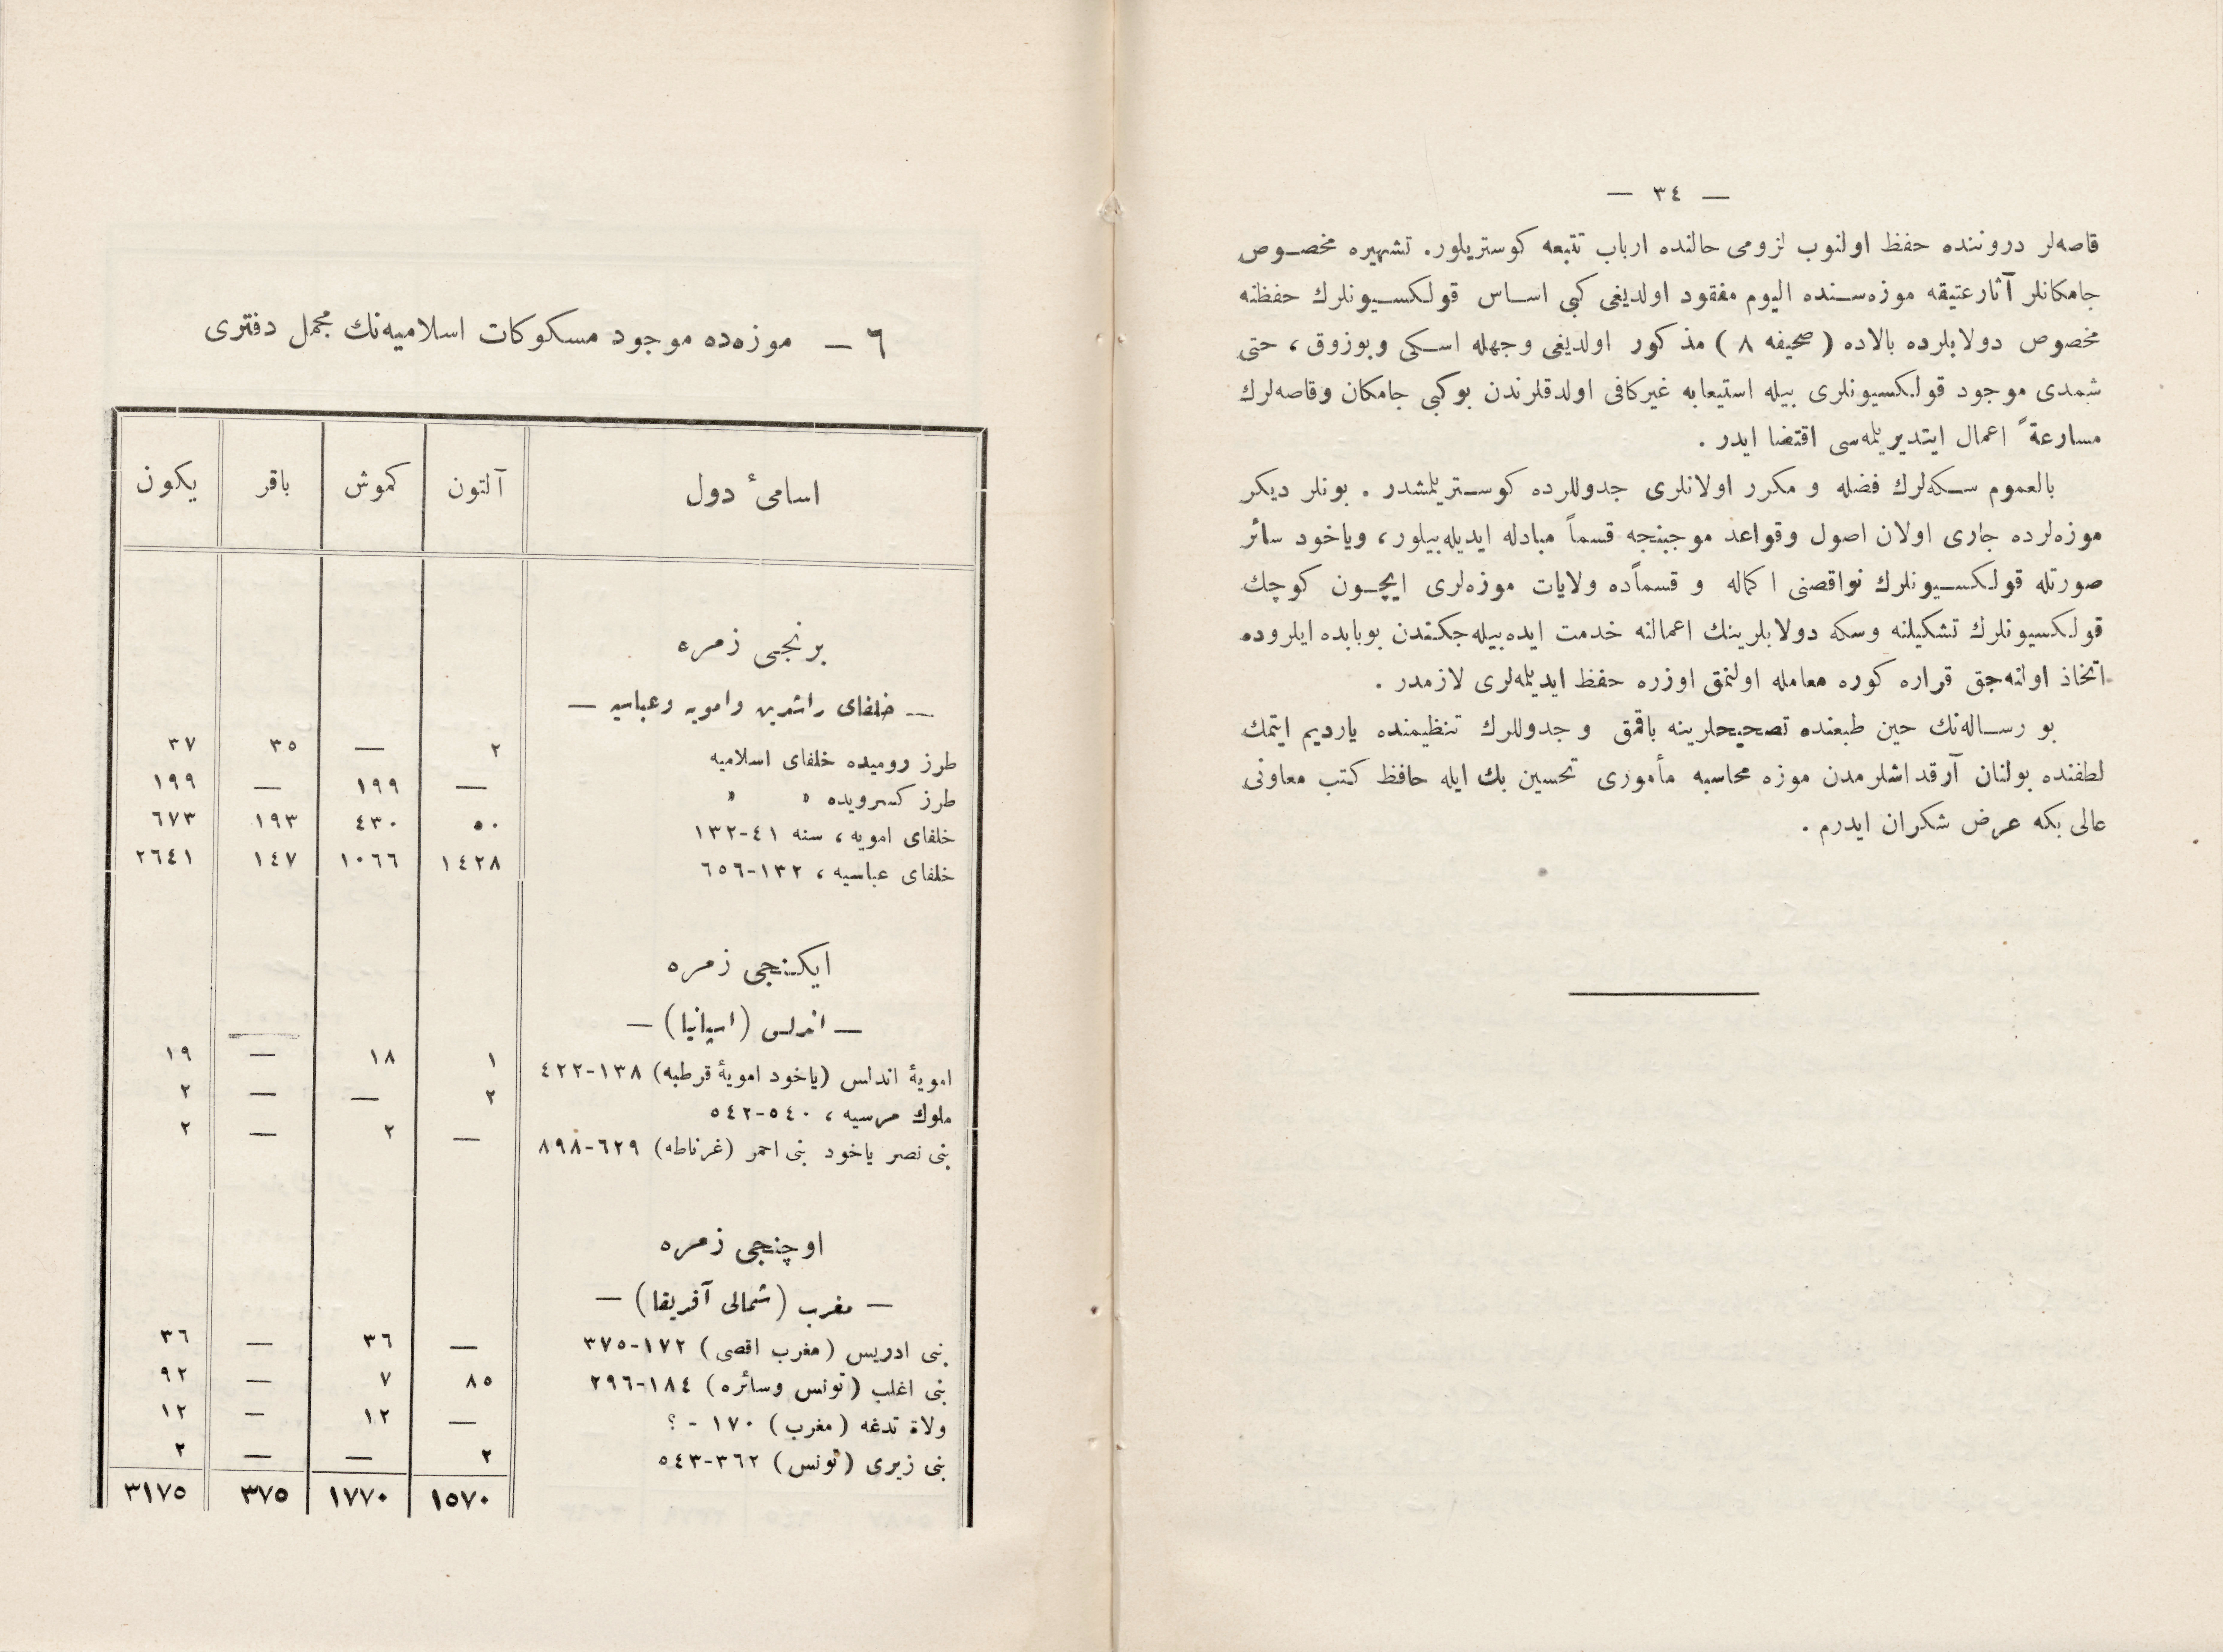 — ٣٤ —
قاصه‌لر دروننده حفظ اولنوب لزومی حالنده ارباب تتبعه كوستریلور. تشهیره مخصوص
جامكانلر آثارعتیقه موزه‌سنده الیوم مفقود اولدیغی كبی اساس قولكسیونلرك حفظنه
مخصوص دولابلرده بالاده ( صحیفه ٨ ) مذكور اولدیغی وجهله اسكی وبوزوق ، حتی
شمدی موجود قولكسیونلری بیله استیعابه غیركافی اولدقلرندن بوكبی جامكان وقاصه‌لرك
مسارعةً اعمال ایتدیریلمه‌سی اقتضا ایدر .
بالعموم سكه‌لرك فضله و مكرر اولانلری جدوللرده كوستریلمشدر . بونلر دیكر
موزه‌لرده جاری اولان اصول وقواعد موجبنجه قسماً مبادله ایدیله‌بیلور ، ویاخود سائر
صورتله قولكسیونلرك نواقصنی اكماله و قسماًده ولایات موزه‌لری ایچون كوچك
قولكسیونلرك تشكیلنه وسكه دولابلرینك اعمالنه خدمت ایده‌بیله‌جكندن بوبابده ایلروده
اتخاذ اولنه‌جق قراره كوره معامله اولنمق اوزره حفظ ایدیلمه‌لری لازمدر .
بو رساله‌نك حین طبعنده تصحیحلرینه باقمق و جدوللرك تنظیمنده یاردیم ایتمك
لطفنده بولنان آرقداشلرمدن موزه محاسبه مأموری تحسین بك ایله حافظ كتب معاونی
عالی بكه عرض شكران ایدرم .
٦ — موزه‌ده موجود مسكوكات اسلامیه‌نك مجمل دفتری
اسامیٔ دول آلتون كموش باقر یكون
برنجی زمره
— خلفای راشدین وامویه وعباسیه —
طرز رومیده خلفای اسلامیه ٢ — ٣٥ ٣٧
طرز كسرویده » » — ١٩٩ — ١٩٩
خلفای امویه ، سنه ٤١-١٣٢ ٥٠ ٤٣٠ ١٩٣ ٦٧٣
خلفای عباسیه ، ١٣٢-٦٥٦ ١٤٢٨ ١٠٦٦ ١٤٧ ٢٦٤١
ایكنجی زمره
— اندلس (اسپانیا) —
امویهٔ اندلس (یاخود امویهٔ قرطبه) ١٣٨-٤٢٢ ١ ١٨ — ١٩
ملوك مرسیه ، ٥٤٠-٥٤٢ ٢ — — ٢
بنی نصر یاخود بنی احمر (غرناطه) ٦٢٩-٨٩٨ — ٢ — ٢
اوچنجی زمره
— مغرب (شمالی آفریقا) —
بنی ادریس (مغرب اقصی) ١٧٢-٣٧٥ — ٣٦ — ٣٦
بنی اغلب (تونس وسائره) ١٨٤-٢٩٦ ٨٥ ٧ — ٩٢
ولاة تدغه (مغرب) ١٧٠ - ؟ — ١٢ — ١٢
بنی زیری (تونس) ٣٦٢-٥٤٣ ٢ — — ٢
١٥٧٠ ١٧٧٠ ٣٧٥ ٣١٧٥